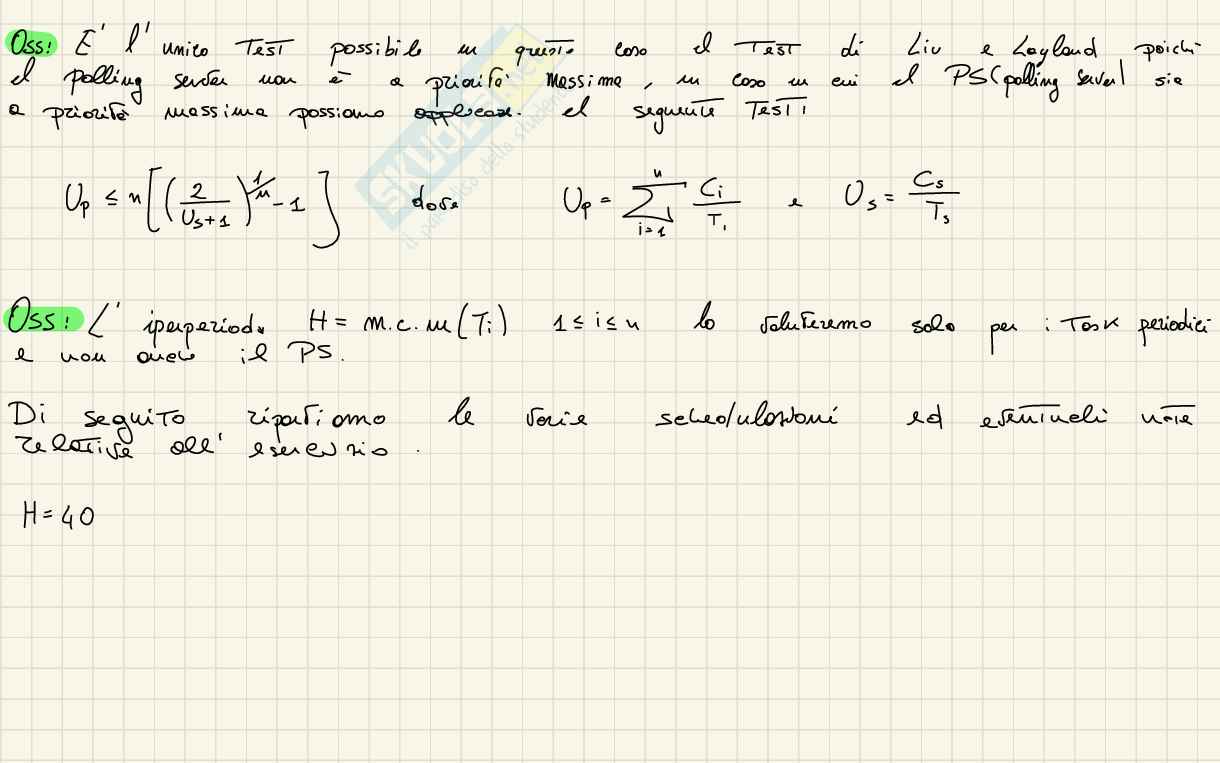 Oss: E' l' unico Test possibile in questo caso il Test di Liu e Layland poichè
il polling server non è a priorità massima, in caso in cui il PS(polling server) sia
a priorità massima possiamo applicare il seguente Test:
Up ≤ n[(2/(Us+1))^(1/n) - 1] dove Up = Σ_{i=1}^{n} Ci/Ti e Us = Cs/Ts
Oss: L' iperperiodo H = m.c.m(Ti) 1≤i≤n lo valuteremo solo per i Task periodici
e non anche il PS.
Di seguito riportiamo le varie schedulazioni ed eventuali note
relative all' esercizio.
H=40
SKUOLA.net
il paradiso dello studente